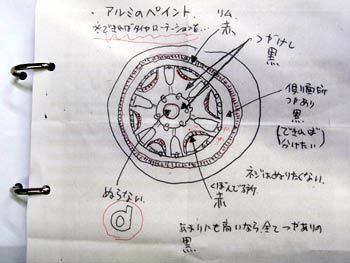 ・アルミのペイント
※できればタイヤローテーションも…
リム
赤
つやけし
黒
低い箇所
つやあり
黒
(できれば
かけたい)
ネジはぬりたくない。
くぼんでる所
赤
ぬらない
d
あまりにも高いなら全てつやありの
黒